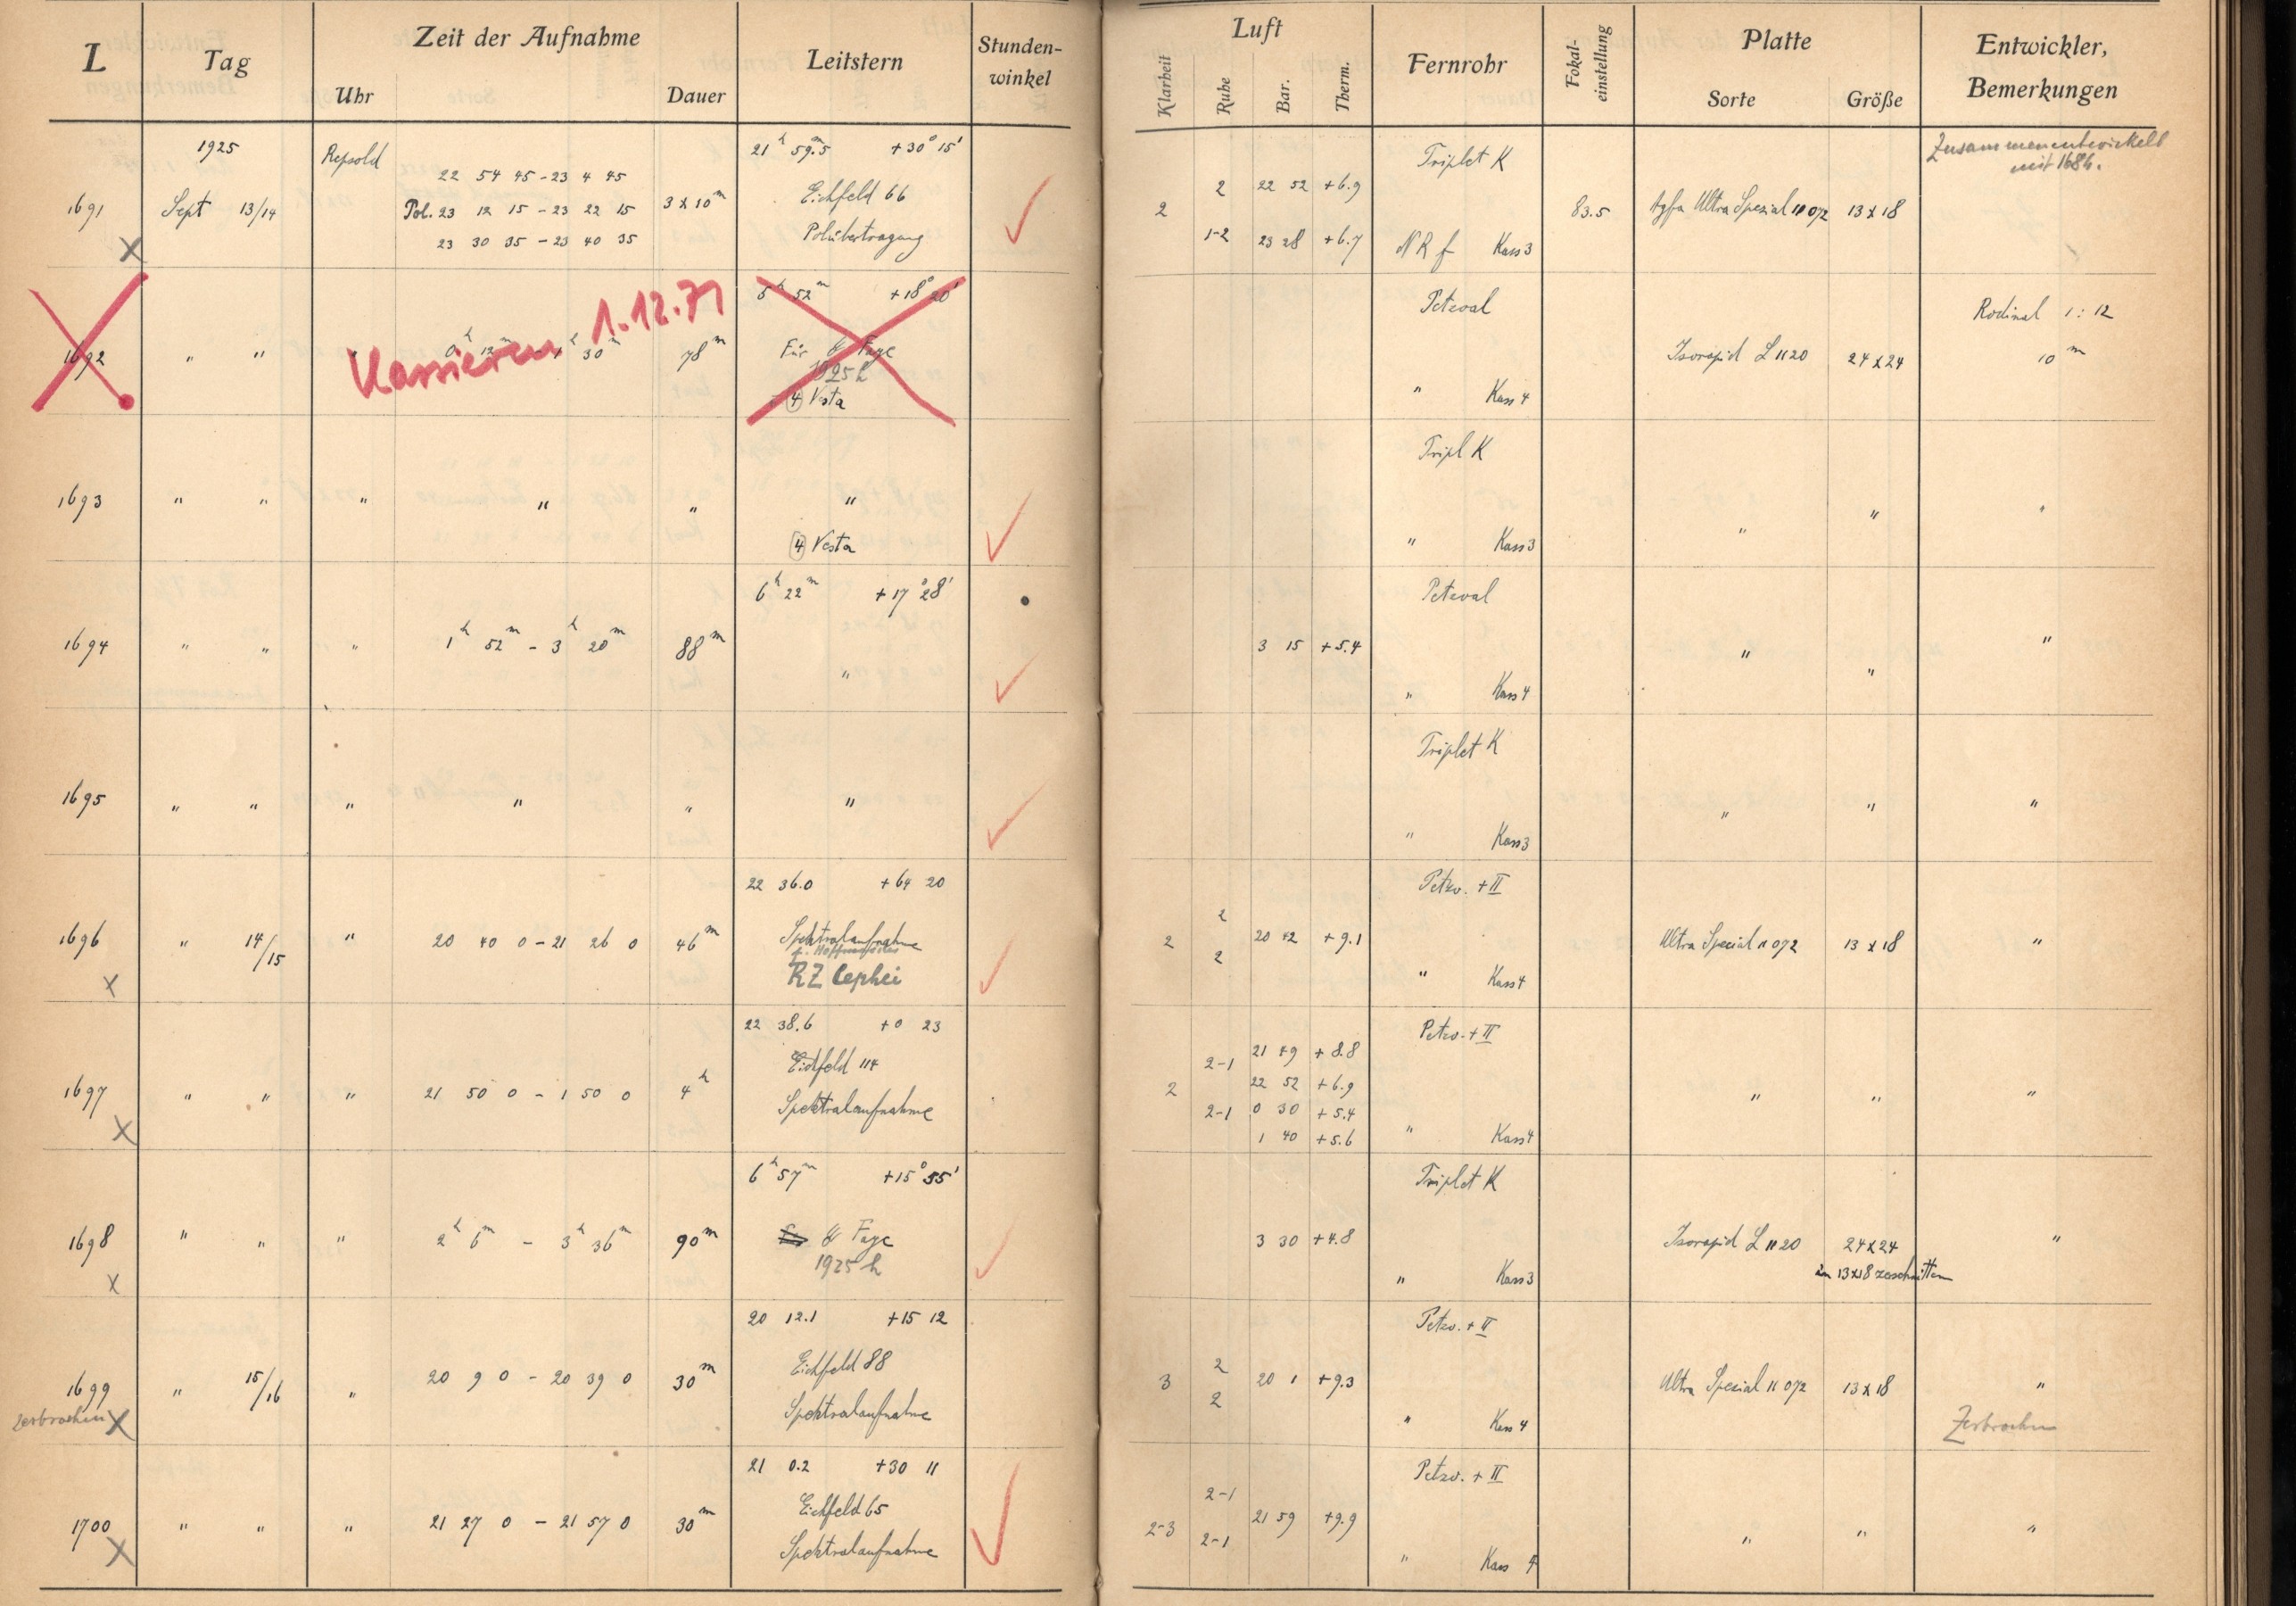 L Tag Zeit der Aufnahme Leitstern Stunden-winkel Luft Fernrohr Fokal-einstellung Platte Entwickler, Bemerkungen
Uhr Dauer Klarheit Ruhe Bar. Therm. Sorte Größe
1925 Repsold 21h 59m.5 +30° 15' Triplet K Zusammenentwickelt
mit 1686.
22 54 45 - 23 4 45 2 22 52 +6.9
1691 Sept 13/14 Pol. 23 12 15 - 23 22 15 3 x 10m Eichfeld 66 2 83.5 Agfa Ultra Spezial 11 072 13 x 18
X 23 30 35 - 23 40 35 Polübertragung 1-2 23 28 +6.7 N R f Kass 3
5h 52m +18° 20' Petzval Rodinal 1 : 12
1692 " " 0h 12m - 1h 30m 78m Für Faye Isorapid L 1120 24 x 24 10m
Kassieren 1.12.71
1925 h
4 Vesta " Kass 4
Tripl K
1693 " " " " " " " " "
4 Vesta " Kass 3
6h 22m +17° 28' Petzval
1694 " " " 1h 52m - 3h 20m 88m 3 15 +5.4 " " "
" " Kass 4
Triplet K
1695 " " " " " " " " "
" Kass 3
22 36.0 +64 20 Petzv. + II
1696 " 14/15 " 20 40 0 - 21 26 0 46m Spektralaufnahme 2 2 20 42 +9.1 Ultra Special 11 072 13 x 18 "
2
X RZ Cephei " Kass 4
22 38.6 +0 23 Petzv. + II
Eichfeld 114 2-1 21 49 +8.8
1697 " " " 21 50 0 - 1 50 0 4h Spektralaufnahme 2 22 52 +6.9 " " "
2-1 0 30 +5.4
X 1 40 +5.6 " Kass 4
6h 57m +15° 55' Triplet K
1698 " " " 2h 6m - 3h 36m 90m Faye 3 30 +4.8 Isorapid L 1120 24 x 24 "
X 1925 h " Kass 3 in 13x18 zerschnitten
20 12.1 +15 12 Petzv. + II
Eichfeld 88 2
1699 " 15/16 " 20 9 0 - 20 39 0 30m 3 20 1 +9.3 Ultra Spezial 11 072 13 x 18 "
zerbrochen X Spektralaufnahme 2 " Kass 4 Zerbrochen
21 0.2 +30 11 Petzv. + II
Eichfeld 65 2-1
1700 " " " 21 27 0 - 21 57 0 30m 2-3 21 59 +9.9 " " "
X Spektralaufnahme 2-1 " Kass 4